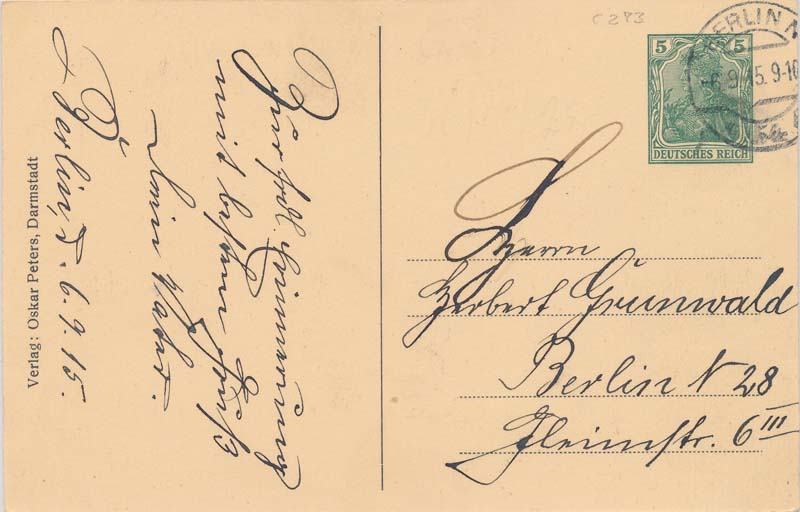 C 273
BERLIN N
-6.9.15.9-10
54
5 5
DEUTSCHES REICH
Zur frdl. Erinnerung
mit bestem Gruß
Dein Vater.
Berlin, d. 6.9.15.
Verlag: Oskar Peters, Darmstadt
Herrn
Herbert Grunwald
Berlin N 28
Fleimstr. 6 III